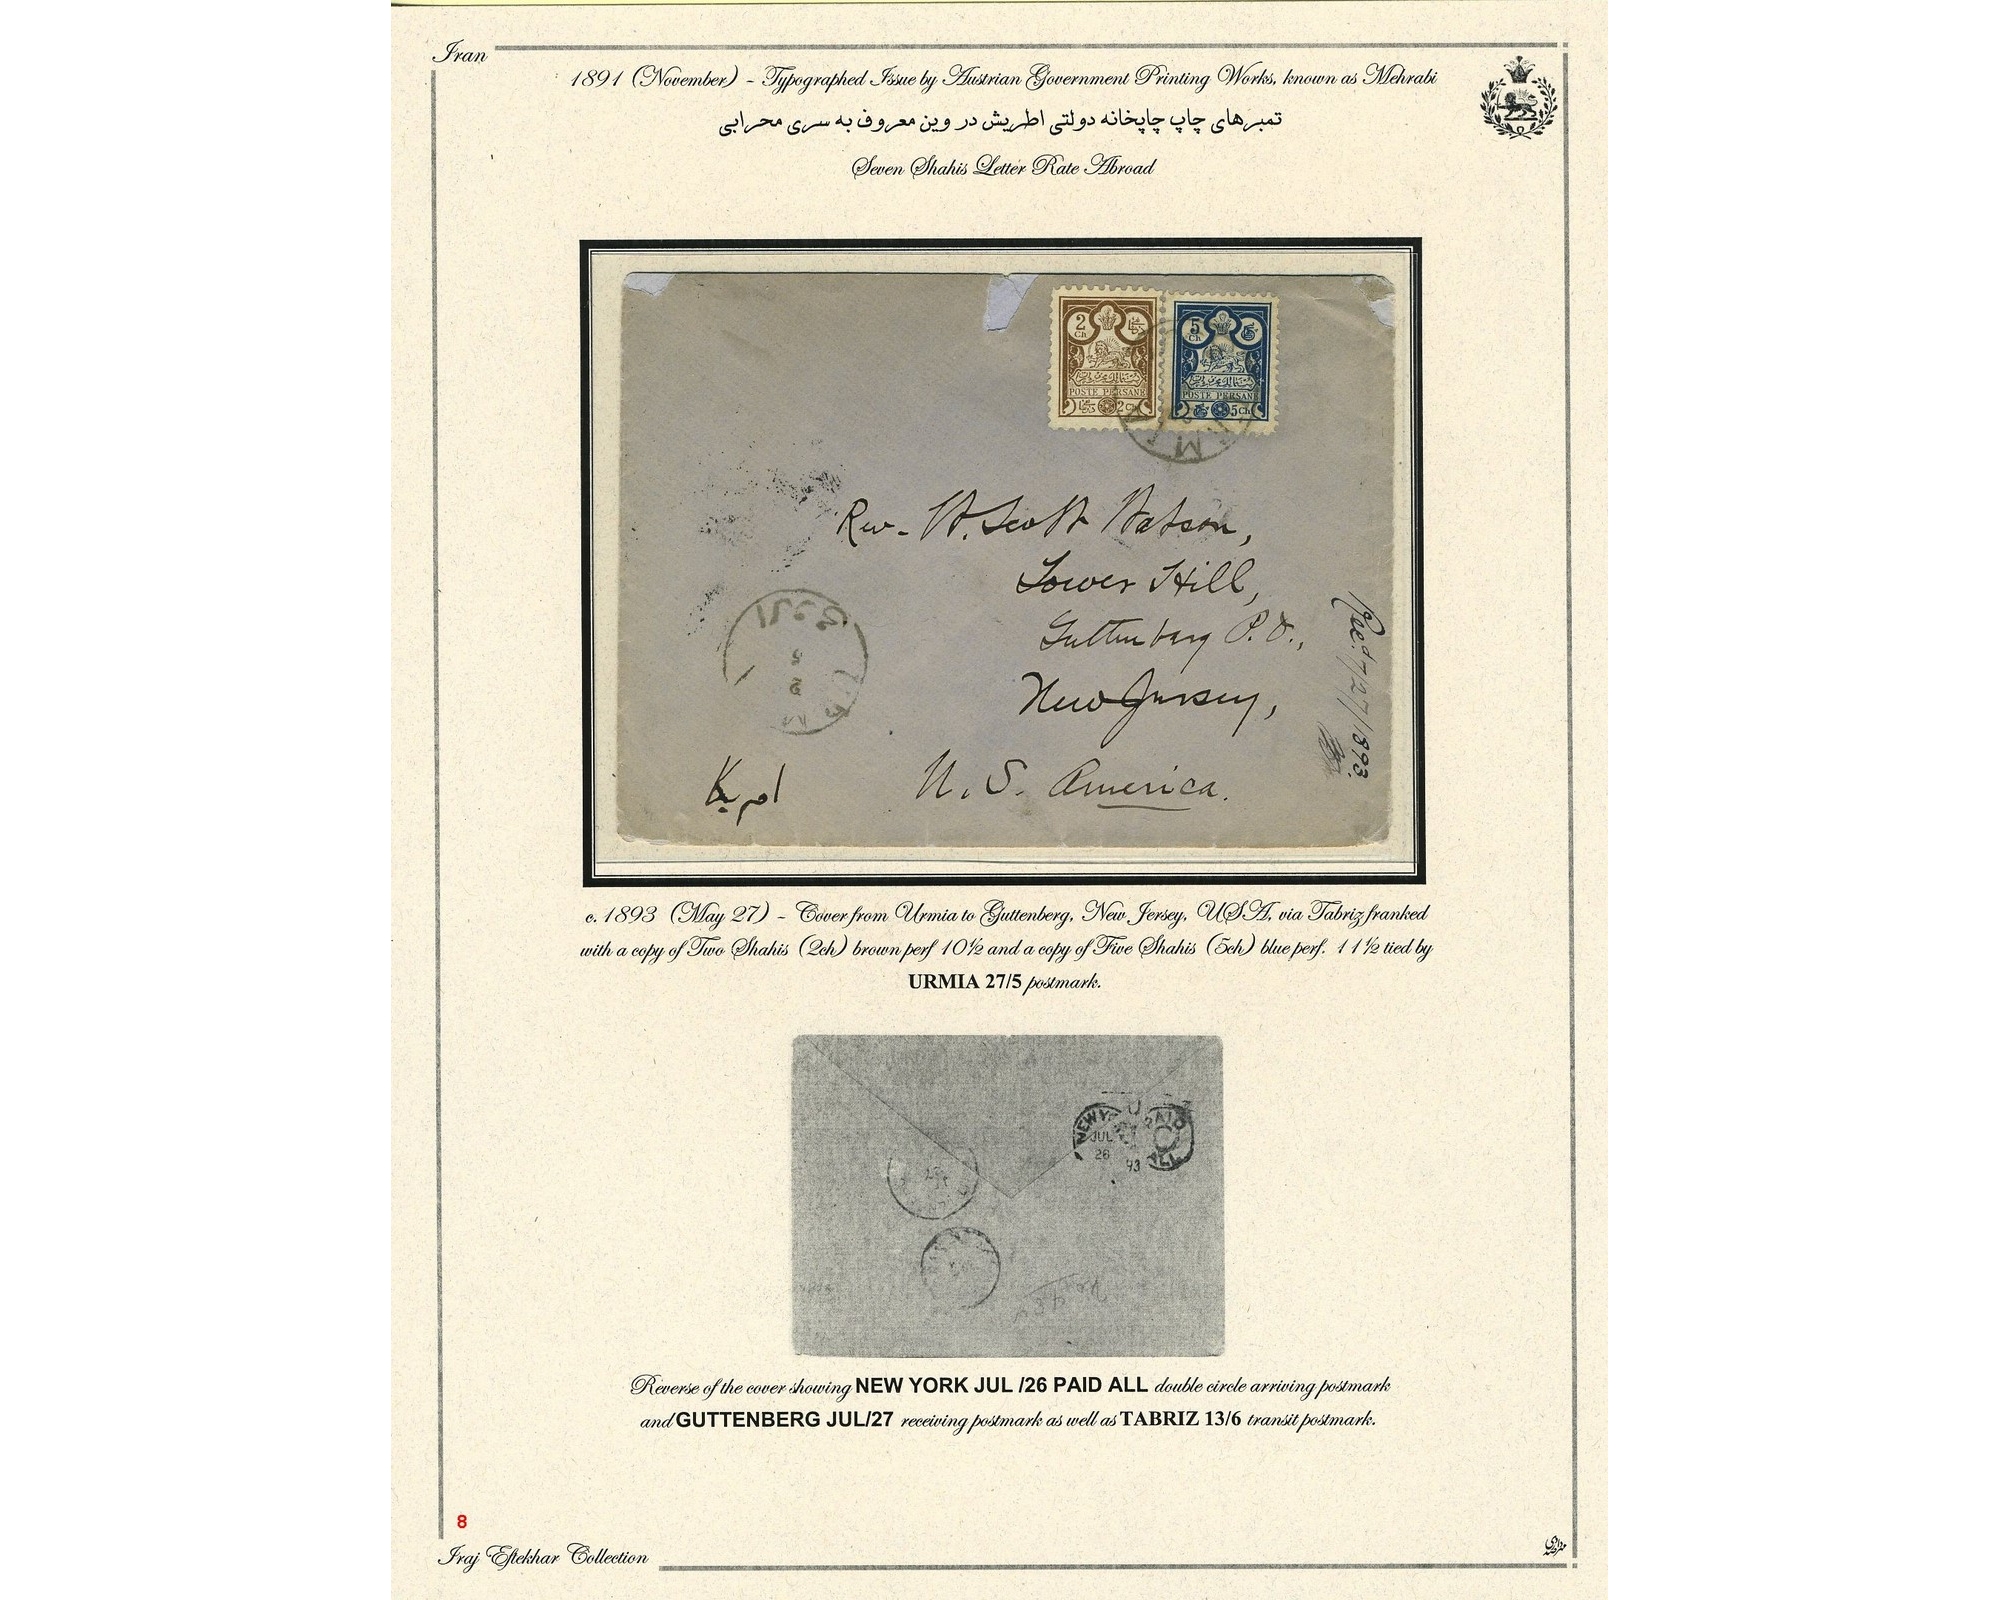 Iran
1891 (November) - Typographed Issue by Austrian Government Printing Works, known as Mehrabi
تمبرهای چاپ چاپخانه دولتی اطریش در وین معروف به سری محرابی
Seven Shahis Letter Rate Abroad
2
Ch
5
Ch
POSTE PERSANE
POSTE PERSANE
2 Ch
5 Ch
Rev. W. Scott Watson,
Tower Hill,
Guttenberg P.O.,
New Jersey,
U. S. America.
امریکا
Rec'd 7/27/1893.
c. 1893 (May 27) - Cover from Urmia to Guttenberg, New Jersey, USA, via Tabriz franked
with a copy of Two Shahis (2ch) brown perf 10½ and a copy of Five Shahis (5ch) blue perf. 11½ tied by
URMIA 27/5 postmark.
NEW Y
JUL
26
93
PAID
ALL
Reverse of the cover showing NEW YORK JUL /26 PAID ALL double circle arriving postmark
and GUTTENBERG JUL/27 receiving postmark as well as TABRIZ 13/6 transit postmark.
8
Iraj Eftekhar Collection